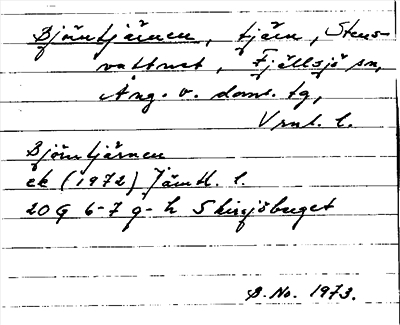 Björntjärnen, tjärn, Stens-
vattnet, Fjällsjö sn,
Ång. v. doms. tg,
Vrnl. l.
Björntjärnen
ek (1972) Jämtl. l.
20 G 6-7 g-h Skirsjöberget
B.No. 1973.